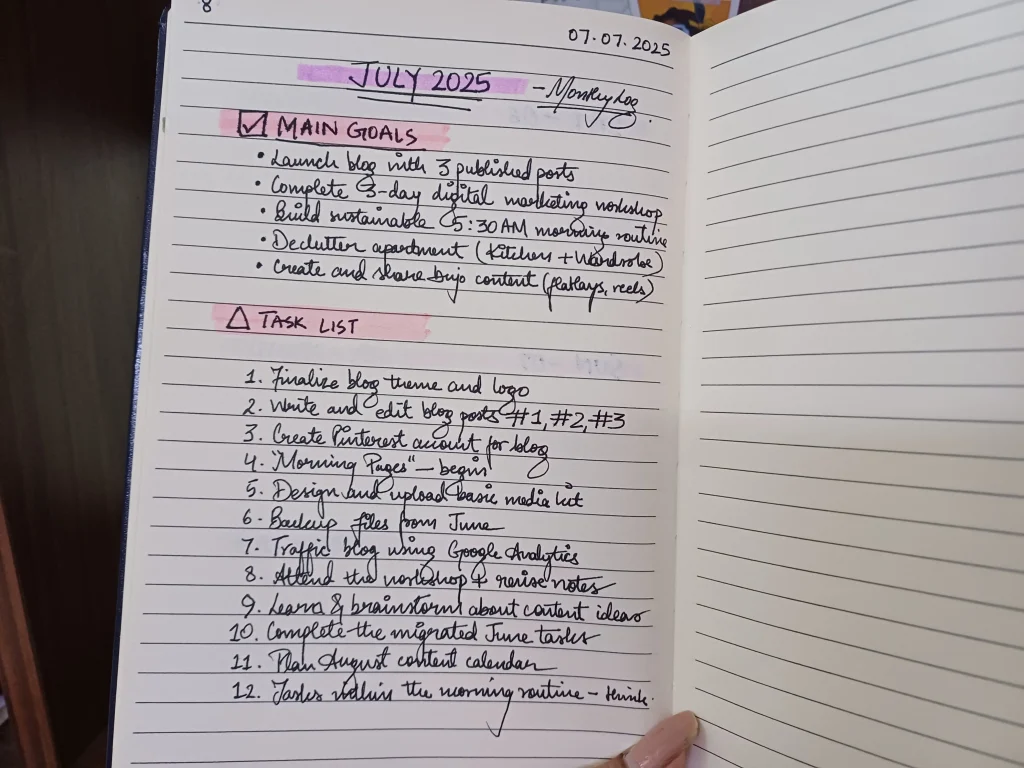 8
07.07.2025
JULY 2025 - Monthly Log.
☑ MAIN GOALS
• Launch blog with 3 published posts
• Complete 3-day digital marketing workshop
• Build sustainable 5:30AM morning routine
• Declutter apartment (Kitchen + Wardrobe)
• Create and share bujo content (flatlays, reels)
△ TASK LIST
1. Finalize blog theme and logo
2. Write and edit blog posts #1, #2, #3
3. Create Pinterest account for blog
4. "Morning Pages" — begin
5. Design and upload basic media kit
6. Backup files from June
7. Traffic blog using Google Analytics
8. Attend the workshop + revise notes
9. Learn & brainstorm about content ideas
10. Complete the migrated June tasks
11. Plan August content calendar
12. Tasks within the morning routine - think.